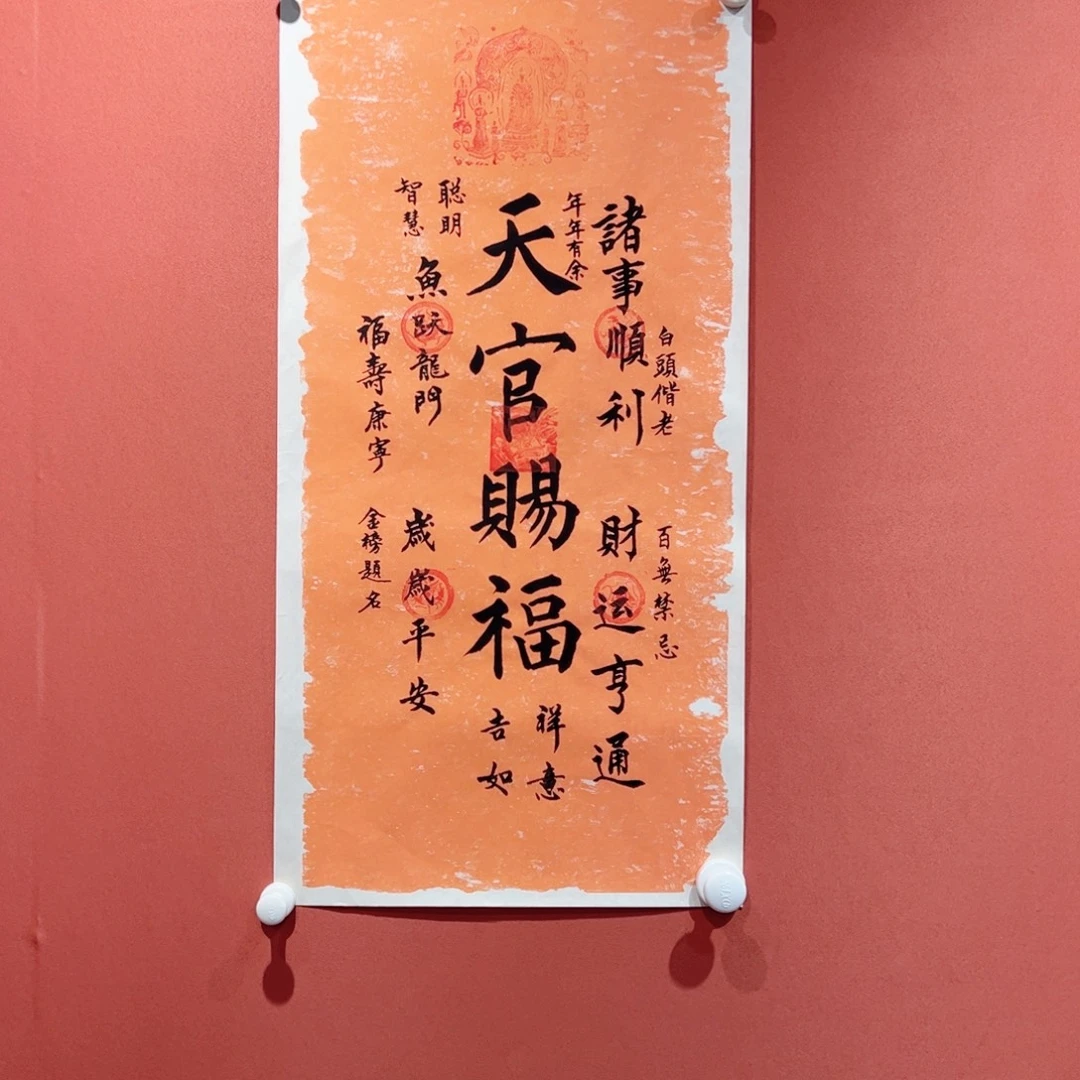 白頭偕老
百無禁忌
諸事順利
財运亨通
年年有余
天官賜福
吉祥
如意
聪明
智慧
魚跃龍門
歳歳平安
福壽康寧
金榜題名